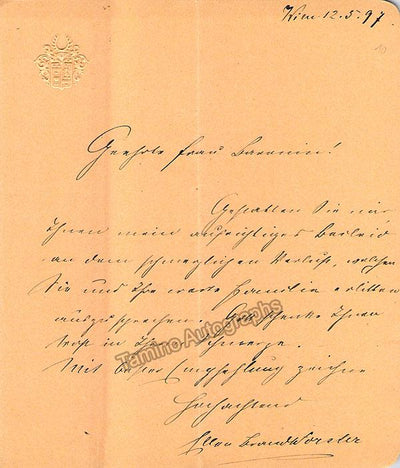 Wien 12.5.97.
10
Geehrte Frau Baronin!
Gestatten Sie mir
Ihnen mein aufrichtiges Beileid
an dem schmerzlichen Verluste, welchen
Sie und Ihre werte Familie erlitten
auszusprechen. Gott schenke Ihnen
Trost in Ihrem Schmerze.
Mit bester Empfehlung zeichne
Hochachtend
Ellen Brandt-Forster
Tamino Autographs